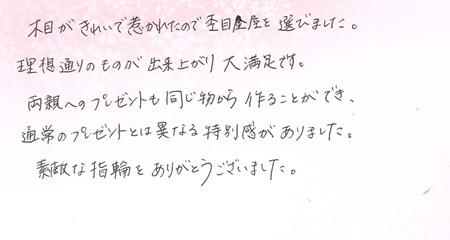 木目がきれいで惹かれたので杢目金屋を選びました。
理想通りのものが出来上がり大満足です。
両親へのプレゼントも同じ物から作ることができ、
通常のプレゼントとは異なる特別感がありました。
素敵な指輪をありがとうございました。